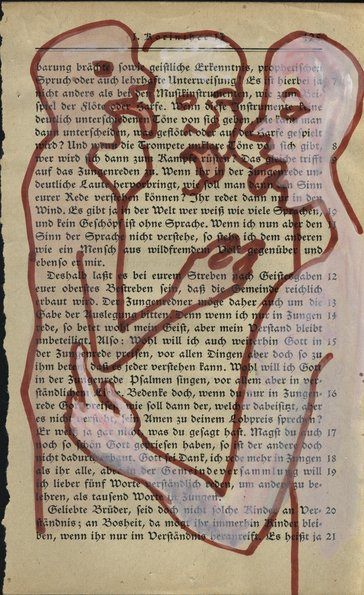 1. Korinther
barung brächte sowie geistliche Erkenntnis, prophetischen
Spruch oder auch lehrhafte Unterweisung? Es ist hierbei ja 7
nicht anders als bei Musikinstrumenten, wie zum Bei-
spiel der Flöte oder Harfe. Wenn diese Instrumente keine
deutlich unterschiedenen Töne von sich geben, wie kann man
dann unterscheiden, was geflötet oder auf der Harfe gespielt
wird? Und wenn die Trompete Töne von sich gibt, 8
wer wird sich dann zum Kampf Das trifft
auf das Zungenreden zu. Wenn der un-
deutliche Laute hervorbringt, wie soll man den Sinn
eurer Rede verstehen können? Ihr redet dann nur in den
Wind. Es gibt ja in der Welt wer weiß wie viele Sprachen, 10
und kein Geschöpf ist ohne Sprache. Wenn ich nur aber den
Sinn der Sprache nicht verstehe, so ich dem anderen
wie ein Mensch aus wildfremdem Volk gegenüber und
ebenso er mir.
Deshalb laßt es bei eurem Streben Geistesgaben 12
euer oberstes Bestreben sein, daß die Gemeinde reichlich
erbaut wird. Der Zungenredner daher auch um die 13
Gabe der Auslegung bitten. Denn wenn ich nur in Zungen 14
rede, so betet wohl mein Geist, aber mein Verstand bleibt
unbeteiligt. Also: Wohl will ich auch weiterhin Gott 15
in der Zungenrede preisen, vor allen Dingen aber doch so zu
ihm beten, jeder verstehen kann. Wohl will ich Gott
in der Zungenrede Psalmen singen, vor allem aber in ver-
ständlichen Bedenke doch, wenn du nur in Zungen 16
rede Gott wie soll dann der, welcher dabeisitzt, aber
es nicht versteht, sein Amen zu deinem Lobpreis sprechen?
Er weiß ja gar nicht, was du gesagt hast. Magst du auch 17
noch so schön Gott gepriesen haben, so ist der andere doch
nicht dadurch erbaut. Gott sei Dank, ich rede mehr in Zungen 18
als ihr alle, aber in der Gemeindeversammlung will 19
ich lieber fünf Worte verständlich um andre zu be-
lehren, als tausend Worte in Zungen.
Geliebte Brüder, seid doch nicht solche Kinder an Ver- 20
ständnis; an Bosheit, da mögt ihr immerhin Kinder blei-
ben, wenn ihr nur im Verständnis heranreift. Es heißt ja 21